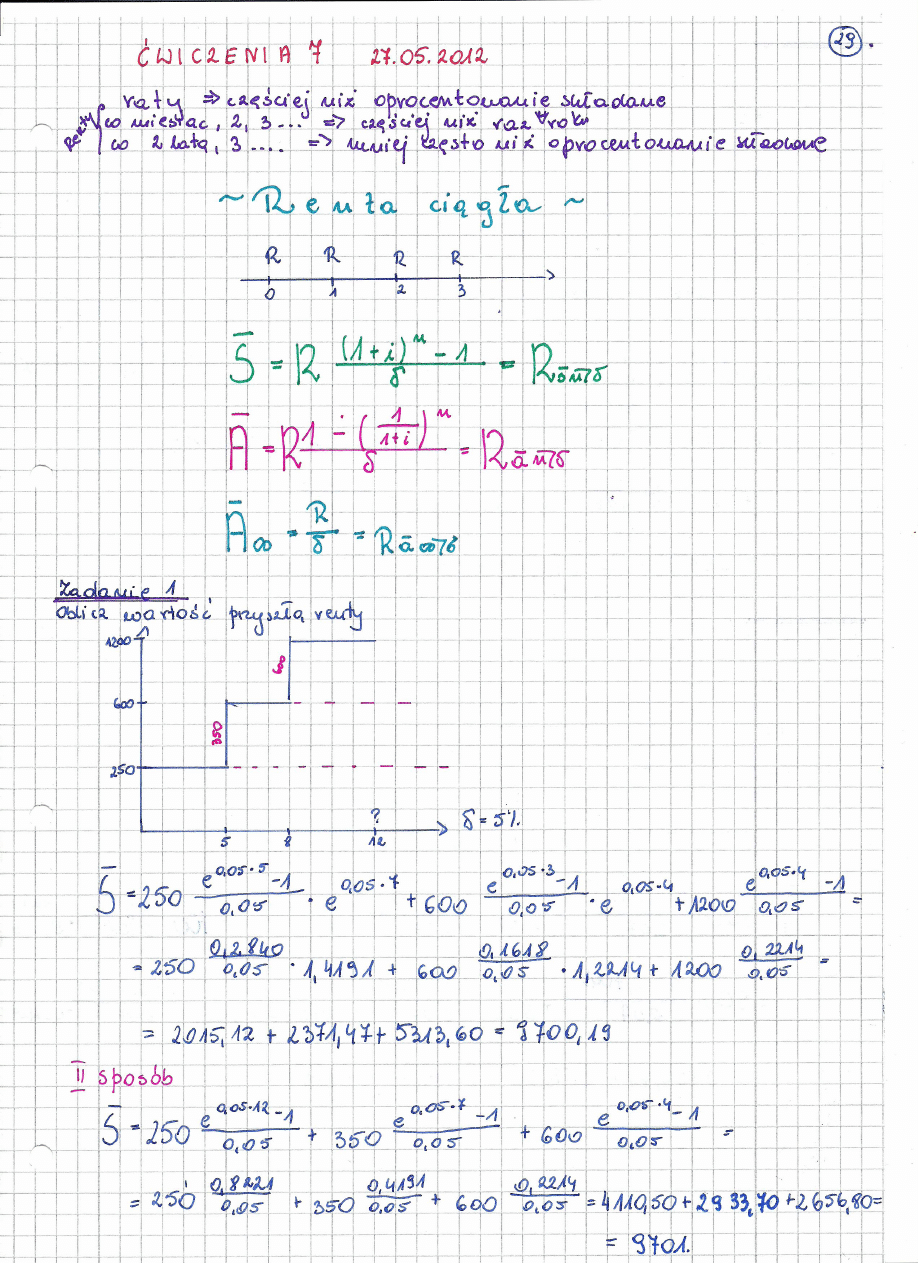 29.
ĆWICZENIA 7 27.05.2012
raty ⇒ częściej niż oprocentowanie składane
Renty co miesiąc, 2, 3 ... ⇒ częściej niż raz w roku
co 2 lata, 3 .... ⇒ mniej często niż oprocentowanie składane
~ Renta ciągła ~
R R R R
0 1 2 3
S̄ = R ((1+i)^n - 1)/δ = R s̄ n̅|δ
Ā = R (1 - (1/(1+i))^n)/δ = R ā n̅|δ
Ā∞ = R/δ = R ā ∞̅|δ
Zadanie 1
Oblicz wartość przyszłą renty
1200
600
600
350
250
? δ = 5%.
5 8 12
S̄ = 250 (e^(0,05·5) - 1)/0,05 · e^(0,05·7) + 600 (e^(0,05·3) - 1)/0,05 · e^(0,05·4) + 1200 (e^(0,05·4) - 1)/0,05 =
= 250 0,2840/0,05 · 1,4191 + 600 0,1618/0,05 · 1,2214 + 1200 0,2214/0,05 =
= 2015,12 + 2371,47 + 5313,60 = 9700,19
II sposób
S̄ = 250 (e^(0,05·12) - 1)/0,05 + 350 (e^(0,05·7) - 1)/0,05 + 600 (e^(0,05·4) - 1)/0,05 =
= 250 0,8221/0,05 + 350 0,4191/0,05 + 600 0,2214/0,05 = 4110,50 + 2933,70 + 2656,80 =
= 9701.